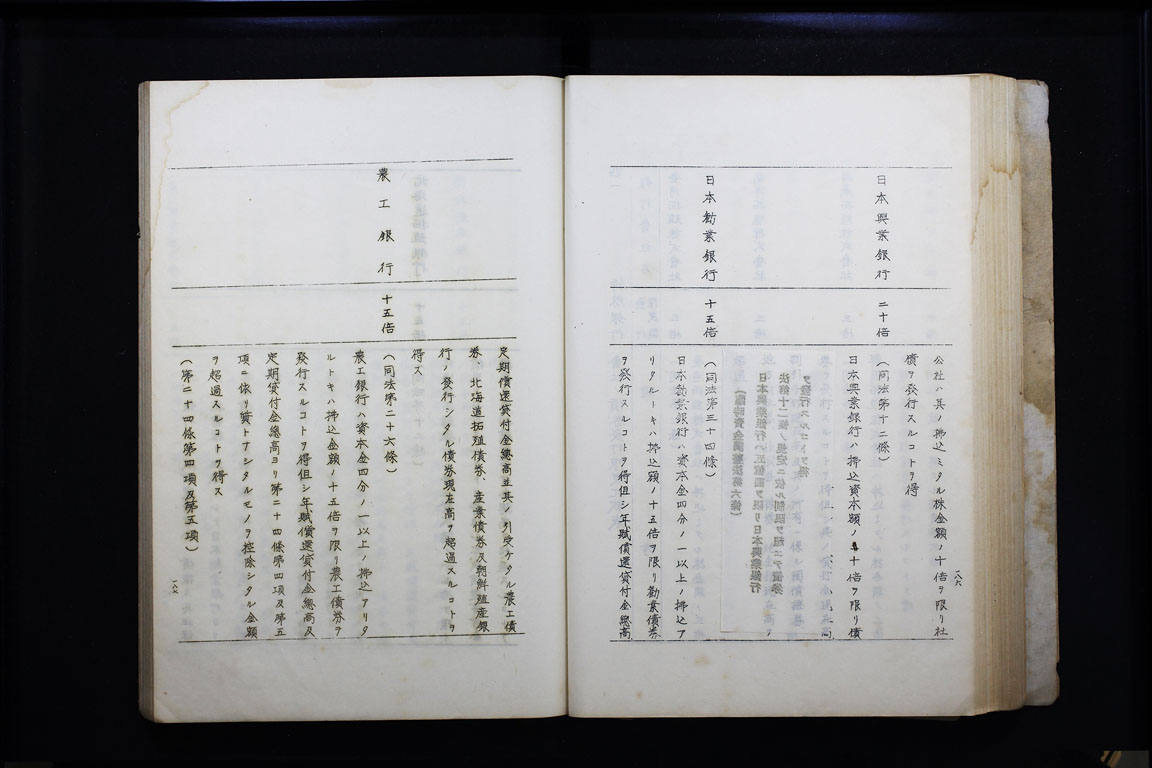 公社ハ其ノ拂込ミタル株金額ノ十倍ヲ限リ社
債ヲ發行スルコトヲ得
(同法第十二條)
日本興業銀行
二十倍
日本興業銀行ハ拂込資本額ノ二十倍ヲ限リ債
ヲ發行スルコトヲ得
法第十二條ノ規定ニ依ル制限ヲ超エテ債券
日本興業銀行ハ五億圓ヲ限リ日本興業銀行
(臨時資金調整法第六條)
(同法第三十四條)
日本勧業銀行
十五倍
日本勧業銀行ハ資本金四分ノ一以上ノ拂込ア
リタルトキハ拂込額ノ十五倍ヲ限リ勧業債券
ヲ發行スルコトヲ得但シ年賦償還貸付金總高
一八六
定期償還貸付金總高並其ノ引受ケタル農工債
券、北海道拓殖債券、産業債券及朝鮮殖産銀
行ノ發行シタル債券現在高ヲ超過スルコトヲ
得ス
(同法第二十六條)
農工銀行
十五倍
農工銀行ハ資本金四分ノ一以上ノ拂込アリタ
ルトキハ拂込金額ノ十五倍ヲ限リ農工債券ヲ
發行スルコトヲ得但シ年賦償還貸付金總高及
定期貸付金總高ヨリ第二十四條第四項及第五
項ニ依リ貸トアシタルモノヲ控除シタル金額
ヲ超過スルコトヲ得ス
(第二十四條第四項及第五項)